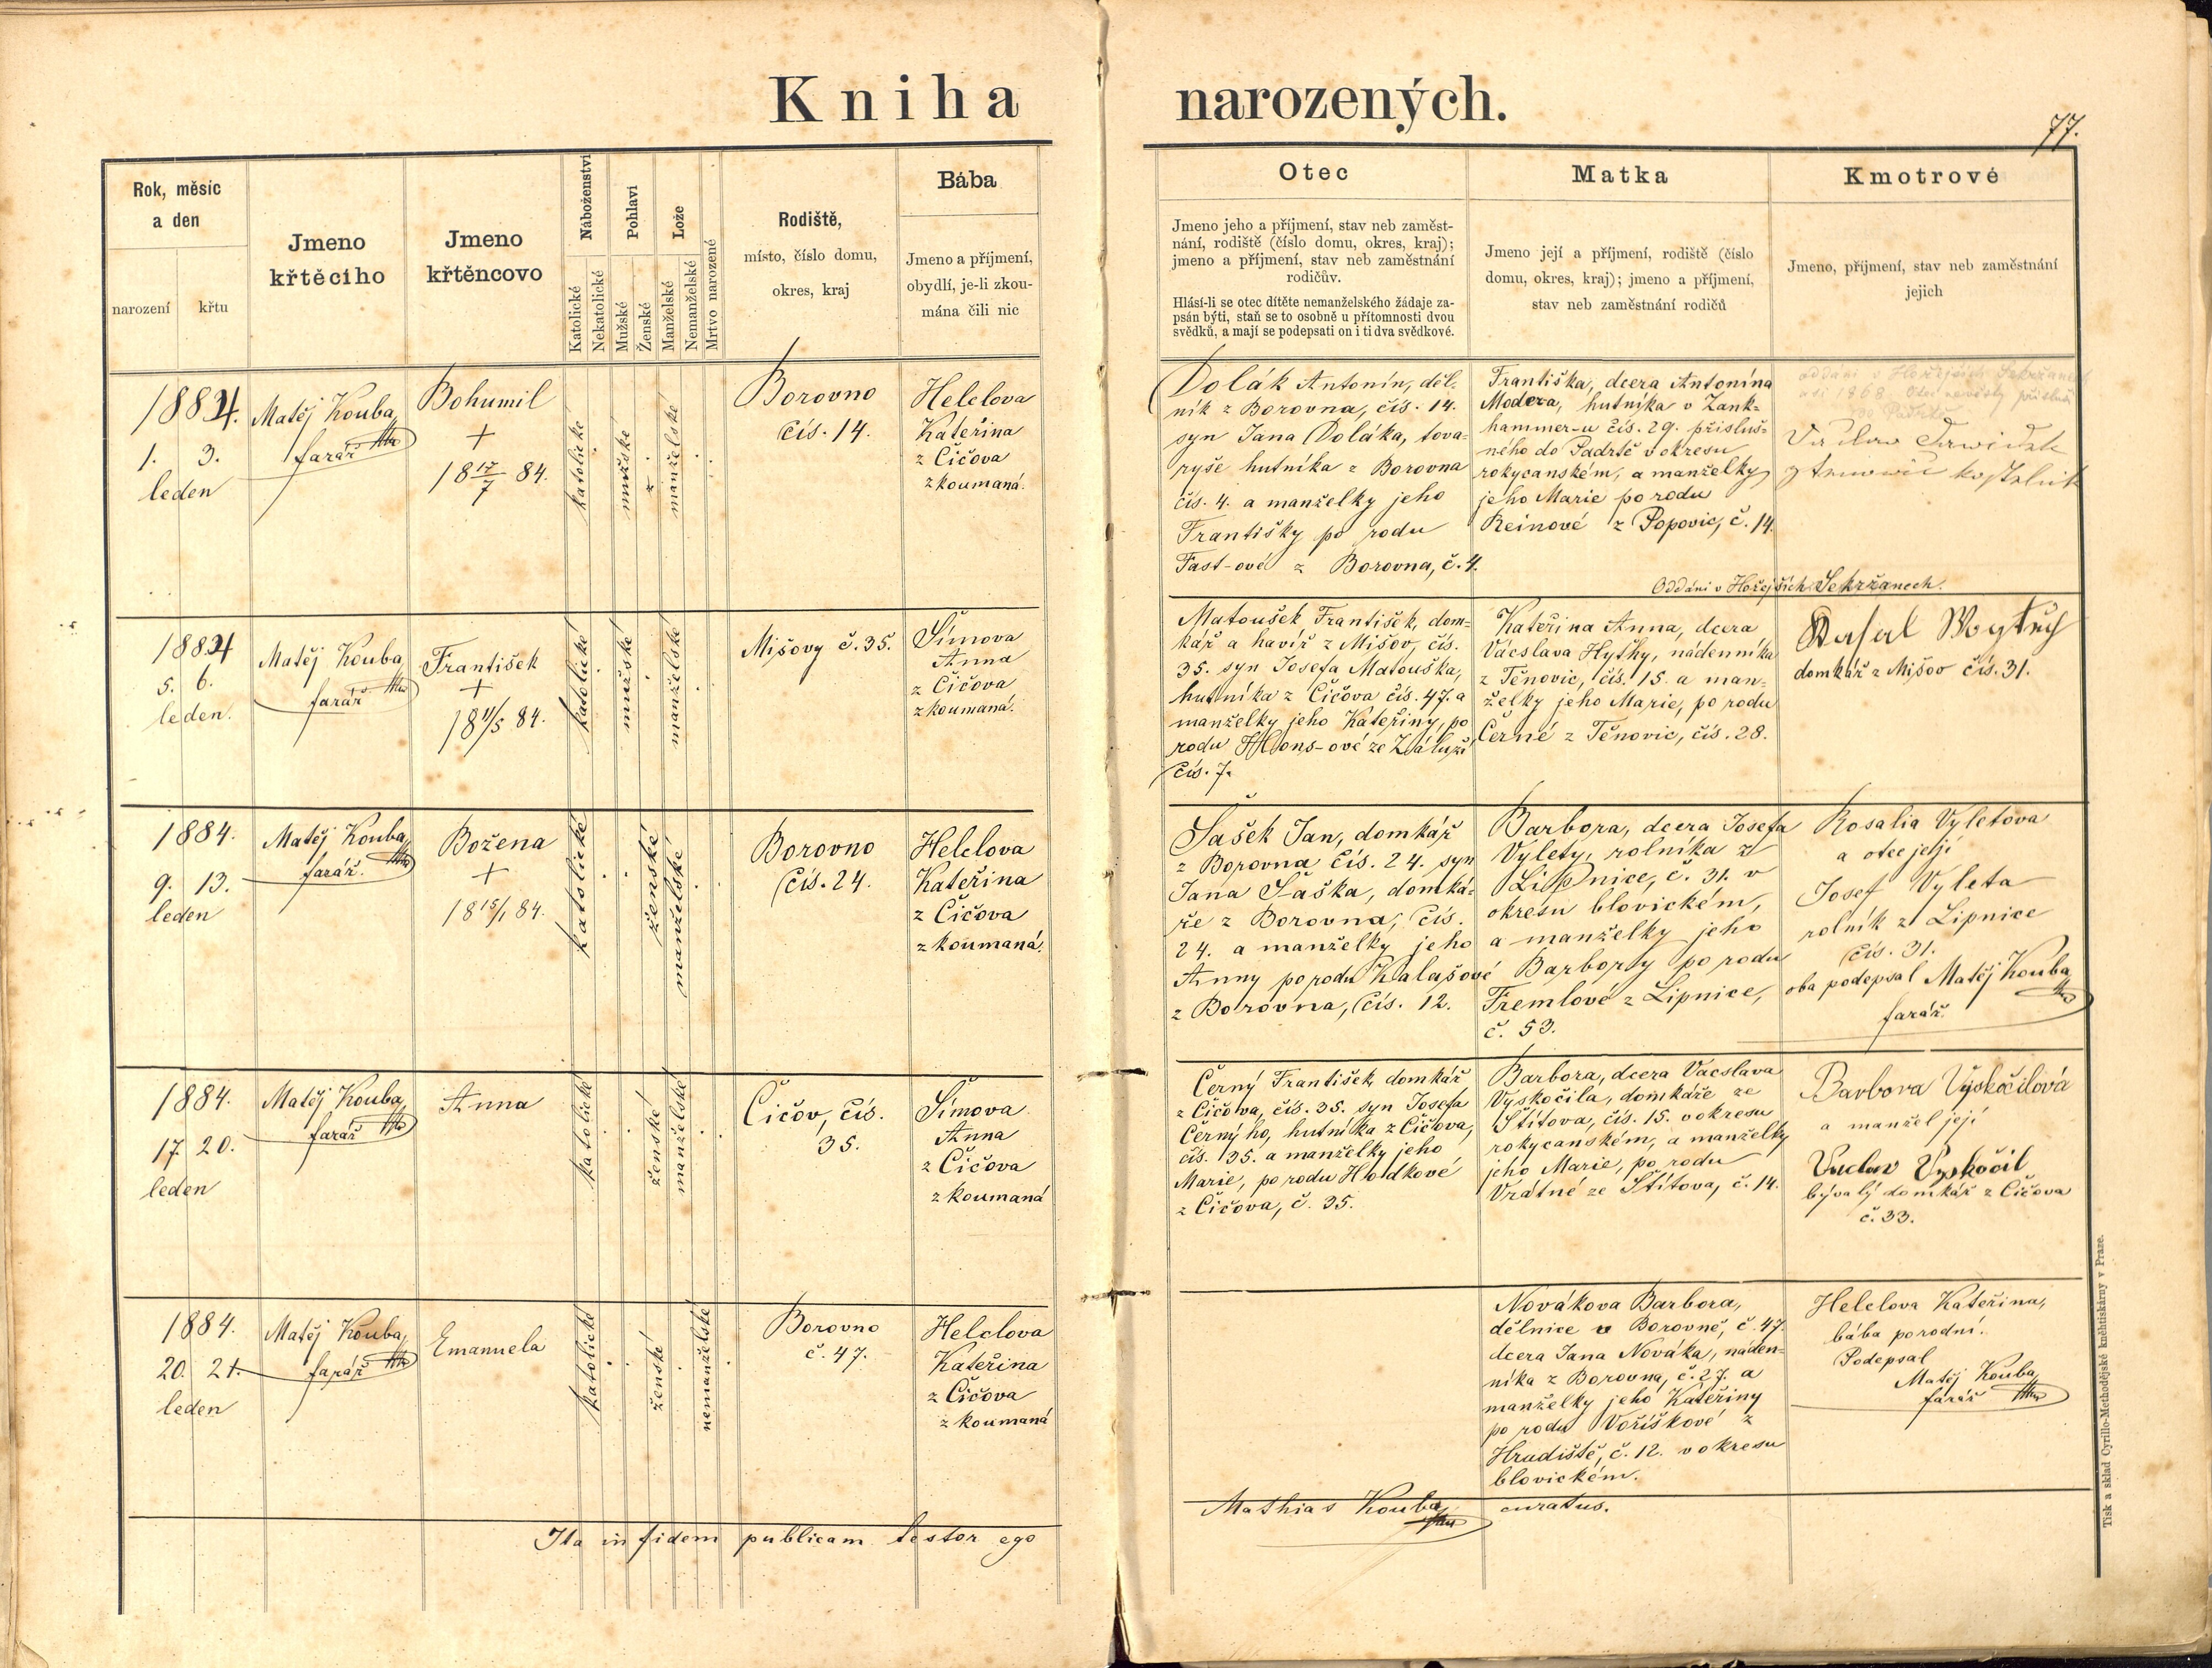 Kniha narozených.
77.
Rok, měsíc
a den
narození
křtu
Jmeno
křtěcího
Jmeno
křtěncovo
Náboženství
Katolické
Nekatolické
Pohlaví
Mužské
Ženské
Lože
Manželské
Nemanželské
Mrtvo narozené
Rodiště,
místo, číslo domu,
okres, kraj
Bába
Jmeno a příjmení,
obydlí, je-li zkou-
mána čili nic
Otec
Jmeno jeho a příjmení, stav neb zaměst-
nání, rodiště (číslo domu, okres, kraj);
jmeno a příjmení, stav neb zaměstnání
rodičův.
Hlásí-li se otec dítěte nemanželského žádaje za-
psán býti, staň se to osobně u přítomnosti dvou
svědků, a mají se podepsati on i ti dva svědkové.
Matka
Jmeno její a příjmení, rodiště (číslo
domu, okres, kraj); jmeno a příjmení,
stav neb zaměstnání rodičů
Kmotrové
Jmeno, příjmení, stav neb zaměstnání
jejich
1884.
1. 3.
leden
Matěj Kouba,
farář
Bohumil
+
18 17/7 84.
katolické
mužské
manželské
Borovno
čís. 14.
Helclova
Kateřina
z Čičova
zkoumaná.
Dolák Antonín, děl-
ník z Borovna, čís. 14.
syn Jana Doláka, tova-
ryše hutníka z Borovna
čís. 4. a manželky jeho
Františky po rodu
Fast-ové z Borovna, č. 4.
Františka, dcera Antonína
Modera, hutníka v Zank-
hammer-u čís. 29. přísluš-
ného do Padrtě v okresu
rokycanském, a manželky
jeho Marie po rodu
Reinové z Popovic, č. 14.
Oddáni v Hořejších Sekržanech.
1884
5. 6.
leden.
Matěj Kouba,
farář
František
+
18 11/5 84.
katolické
mužské
manželské
Mišovy č. 35.
Šímova
Anna
z Čičova
zkoumaná.
Matoušek František, dom-
kář a havíř z Mišov, čís.
35. syn Josefa Matouška,
hutníka z Čičova čís. 47. a
manželky jeho Kateřiny, po
rodu Hons-ové ze Záluží
čís. 7.
Kateřina Anna, dcera
Vácslava Hytky, nádenníka
z Těnovic, čís. 15. a man-
želky jeho Marie, po rodu
Černé z Těnovic, čís. 28.
domkář z Mišov čís. 31.
1884.
9. 13.
leden
Matěj Kouba,
farář.
Božena
+
18 15/1 84.
katolické
ženské
manželské
Borovno
čís. 24.
Helclova
Kateřina
z Čičova
zkoumaná.
Šašek Jan, domkář
z Borovna čís. 24. syn
Jana Šaška, domká-
ře z Borovna, čís.
24. a manželky jeho
Anny po rodu Kalašové
z Borovna, čís. 12.
Barbora, dcera Josefa
Vylety, rolníka z
Lipnice, č. 31. v
okresu blovickém,
a manželky jeho
Barbory po rodu
Tremlové z Lipnice,
č. 53.
Rosalia Vyletova
a otec její
Josef Vyleta
rolník z Lipnice
čís. 31.
oba podepsal Matěj Kouba,
farář.
1884.
17. 20.
leden
Matěj Kouba,
farář
Anna
katolické
ženské
manželské
Čičov, čís.
35.
Šímova
Anna
z Čičova
zkoumaná
Černý František, domkář
z Čičova, čís. 35. syn Josefa
Černýho, hutníka z Čičova,
čís. 35. a manželky jeho
Marie, po rodu Hodkové
z Čičova, č. 35.
Barbora, dcera Vácslava
Vyskočila, domkáře ze
Štítova, čís. 15. v okresu
rokycanském, a manželky
jeho Marie, po rodu
Vrátné ze Štítova, č. 14.
Barbora Vyskočilová
a manžel její
Vaclav Vyskočil
bývalý domkář z Čičova
č. 33.
1884.
20. 21.
leden
Matěj Kouba,
farář
Emanuela
katolické
ženské
nemanželské
Borovno
č. 47.
Helclova
Kateřina
z Čičova
zkoumaná
Nováková Barbora,
dělnice v Borovně, č. 47.
dcera Jana Nováka, náden-
níka z Borovna, č. 27. a
manželky jeho Kateřiny
po rodu Voříškové z
Hradiště, č. 12. v okresu
blovickém.
Helclova Kateřina,
bába porodní.
Podepsal
Matěj Kouba,
farář
Ita in fidem publicam testor ego
Mathias Kouba, curatus.
Tisk a sklad Cyrillo-Methodějské kněhtiskárny v Praze.